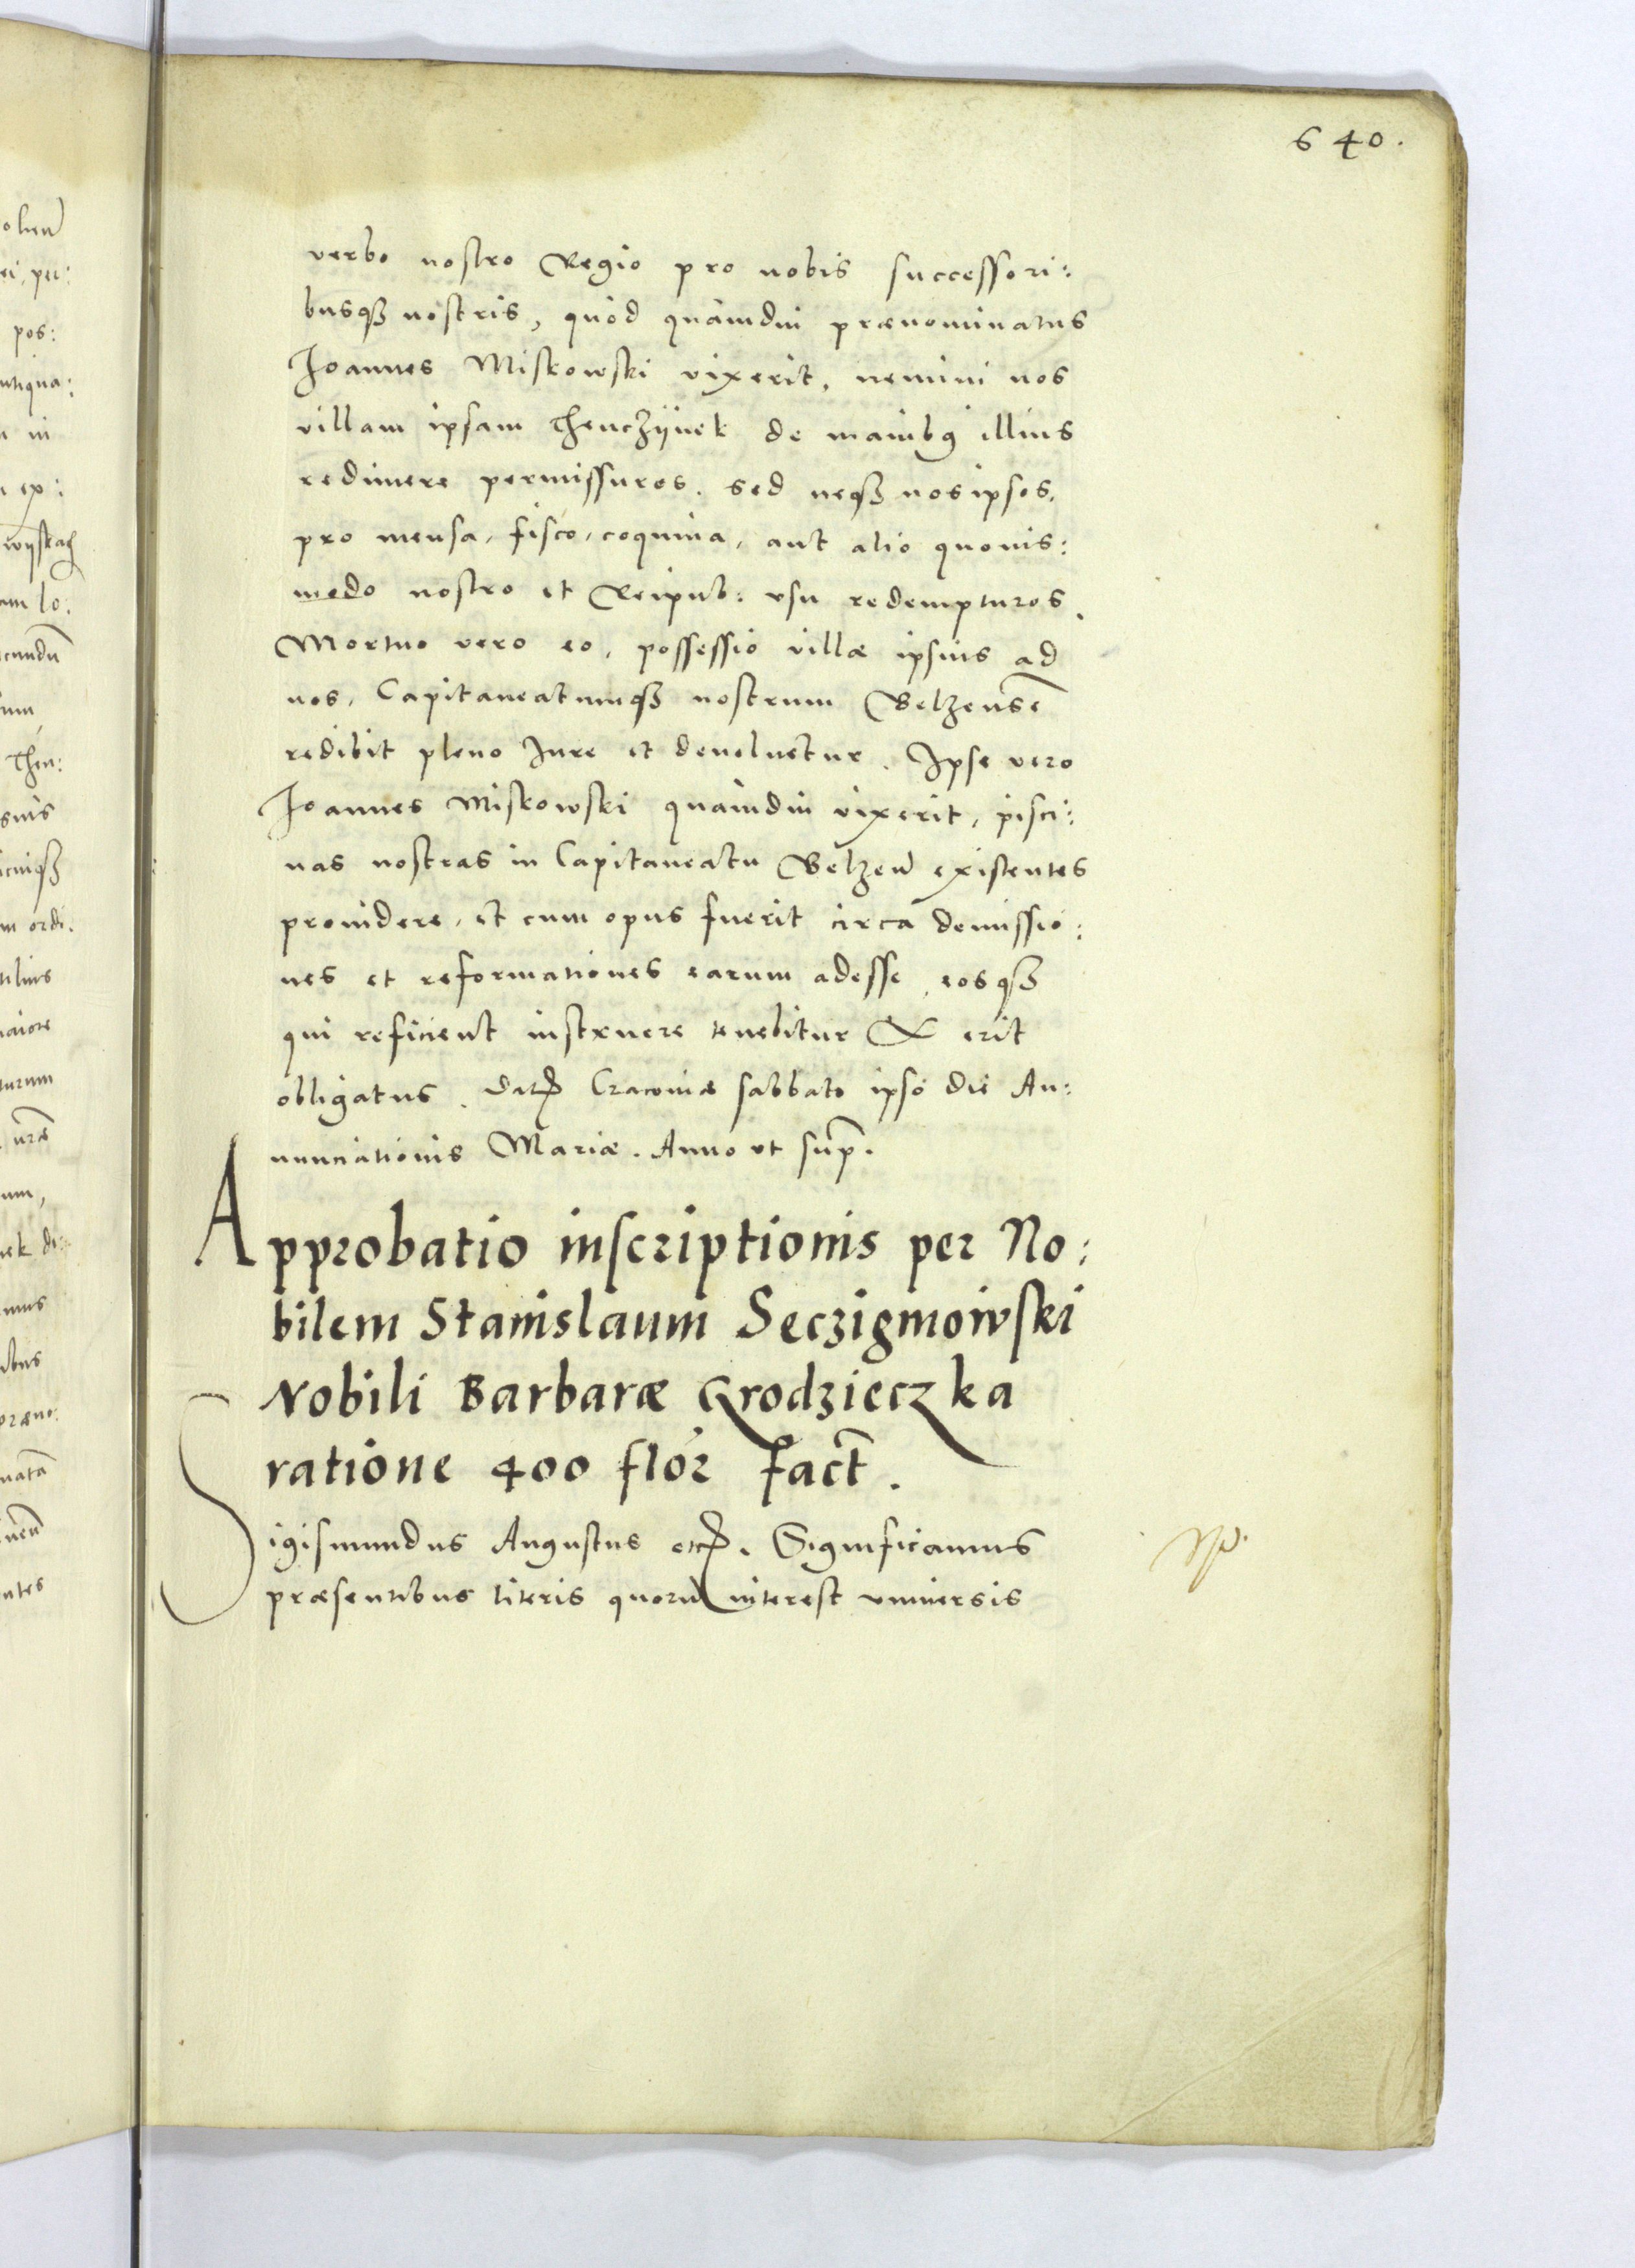 640.
verbo nostro Regio pro nobis successori:
busqꝫ nostris, quòd quàmdiu prænominatus
Joannes Miskowski vixerit, nemini nos
villam ipsam Thenczijnek de manibꝰ illius
redimere permissuros. sed neqꝫ nosipsos,
pro mensa, fisco, coquina, aut alio quouis:
modo nostro et Reipub: vsu redempturos.
Mortuo vero eo, possessio villæ ipsius ad
nos, Capitaneatumqꝫ nostrum Belzensē
redibit pleno Iure et deuoluetur. Ipse vero
Joannes Miskowski quamdiu vixerit, pisci:
nas nostras in Capitaneatu Belzen̄ existentes
prouidere, et cum opus fuerit circa demissio:
nes et reformationes earum adesse, eosqꝫ
qui reficient instruere tenebitur & erit
obligatus. Datꝭ Cracouiæ sabbato ipso die An:
nunciationis Mariæ. Anno vt sup̄.
Approbatio inscriptionis per No:
bilem Stanislaum Seczigmowski
Nobili Barbaræ Grodzieczka
ratione 400 flor fact̄.
Sigismundus Augustus etcꝭ. Significamus
præsentibus literis quorū interest vniuersis